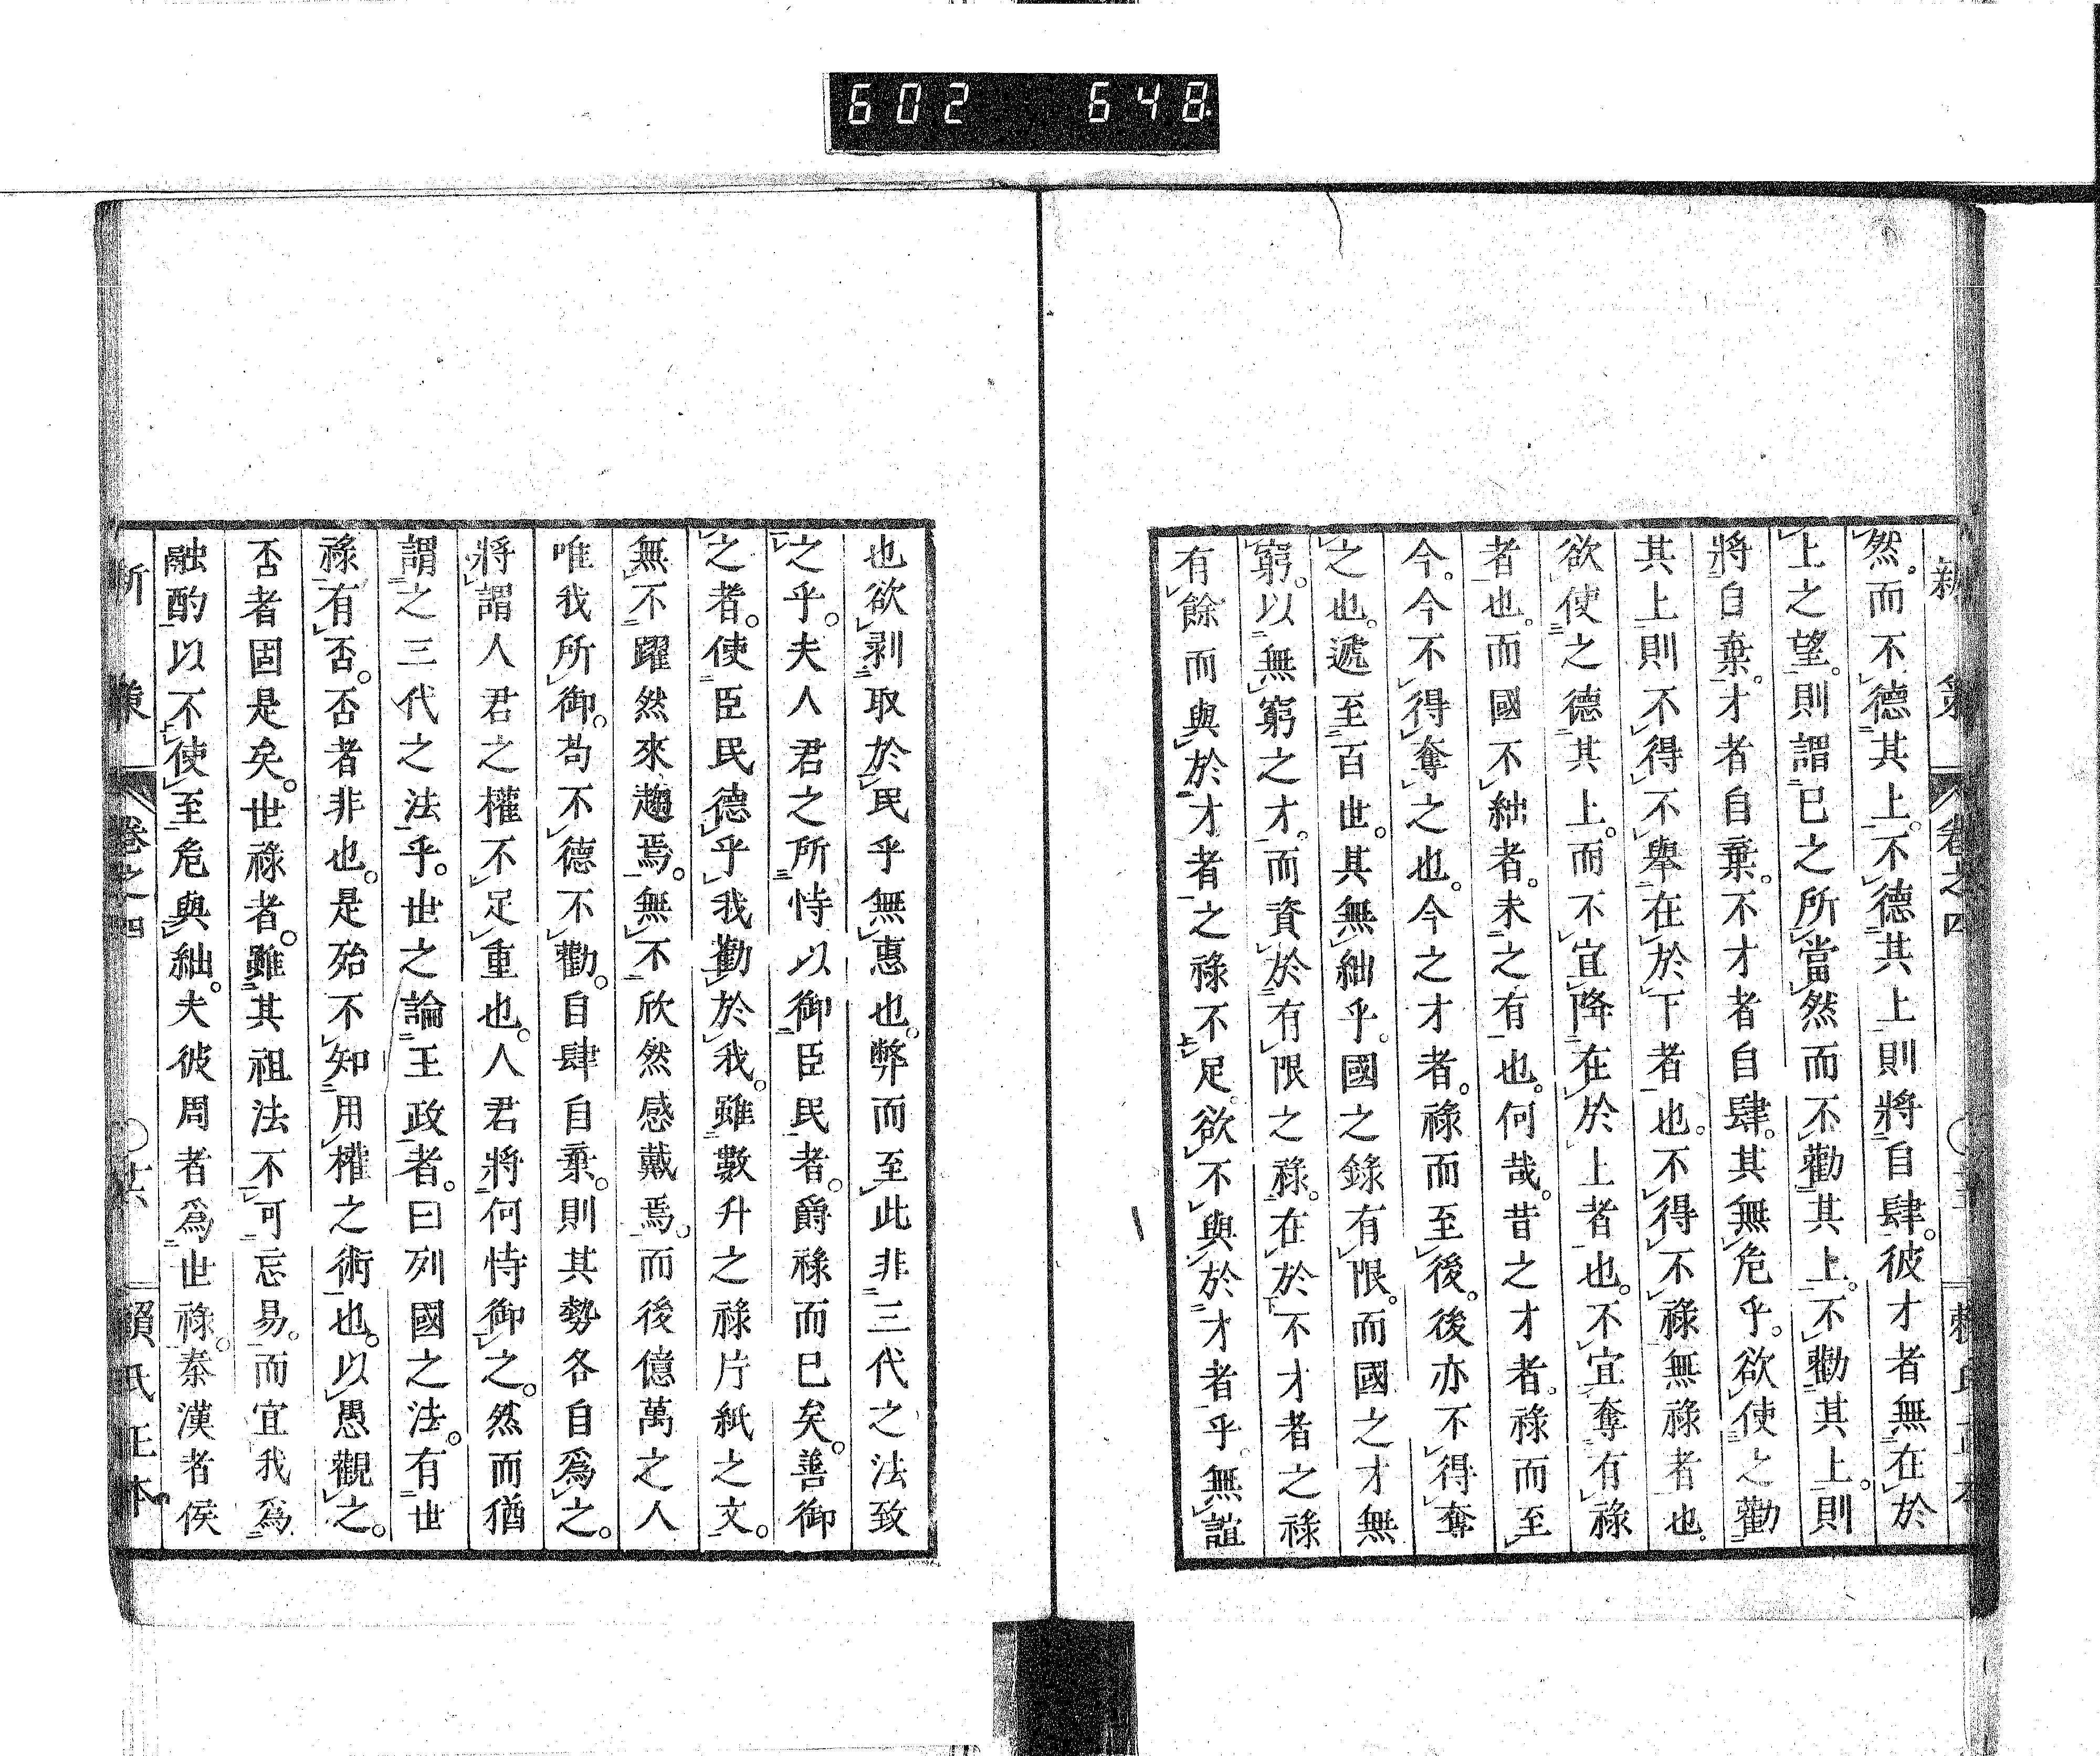 602 648
然。而不德其上。不德其上則將自肆。彼才者無在於
上之望。則謂已之所當然而不勸其上。不勸其上。則
將自棄。才者自棄。不才者自肆。其無危乎。欲使之勸
其上則不得不舉在於下者也。不得不祿無祿者也。
欲使之德其上。而不宜降在於上者也。不宜奪有祿
者也。而國不絀者。未之有也。何哉。昔之才者。祿而至
今。今不得奪之也。今之才者。祿而至後。後亦不得奪
之也。遞至百世。其無絀乎。國之錄有限。而國之才無
窮。以無窮之才。而資於有限之祿。在於不才者之祿
有餘而與於才者之祿不足。欲不與於才者乎。無誼
也欲剥取於民乎無惠也。弊而至此非三代之法致
之乎。夫人君之所恃以御臣民者。爵祿而巳矣。善御
之者。使臣民德乎我勸於我。雖數升之祿片紙之文。
無不躍然來趨焉。無不欣然感戴焉。而後億萬之人
唯我所御。苟不德不勸。自肆自棄。則其勢各自爲之。
將謂人君之權不足重也。人君將何恃御之。然而猶
謂之三代之法乎。世之論王政者。曰列國之法。有世
祿有否。否者非也。是殆不知用權之術也。以愚觀之。
否者固是矣。世祿者。雖其祖法不可忘易。而宜我爲
融酌以不使至危與絀。夫彼周者爲世祿。秦漢者侯
卷之四
賴氏正本